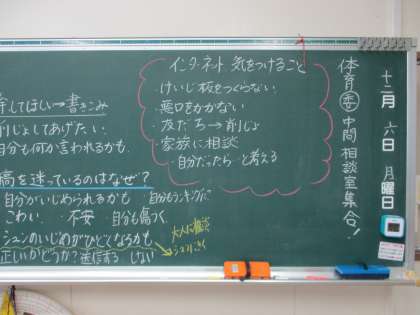 十二月六日月曜日
体育委中間相談室集合!
インターネット 気をつけること
・けいじ板をつくらない
・悪口をかかない
・友だち→削じょ
・家族に相談
・自分だったら…と考える
してほしい→書きこみ
削じょしてあげたい.
自分も何か言われるかも.
稿を迷っているのはなぜ?
自分がいじめられるかも
こわい. 不安 自分も傷つく
シュンのいじめがひどくなるかも
正しいかどうか?送信する
大人に相談